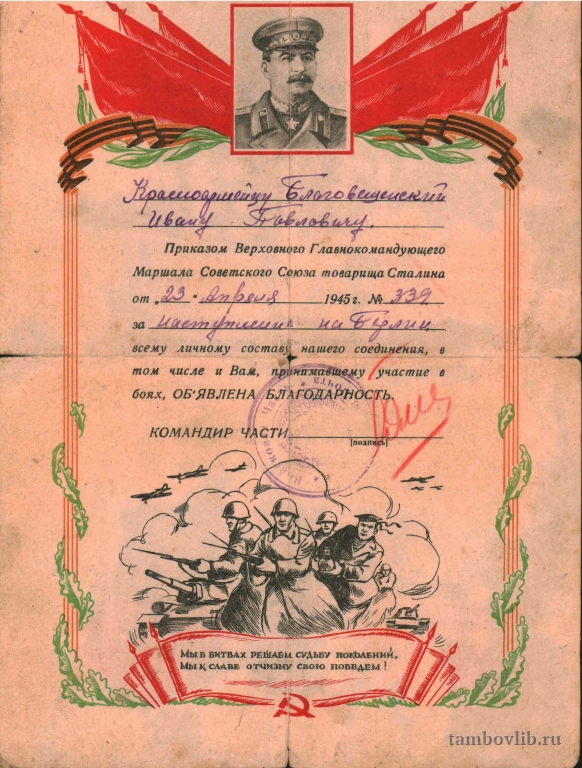 Красноармейцу Благовещенский
Ивану Павловичу.
Приказом Верховного Главнокомандующего
Маршала Советского Союза товарища Сталина
от „23" Апреля 1945 г. № 339
за наступление на Берлин
всему личному составу нашего соединения, в
том числе и Вам, принимавшему участие в
боях, ОБ'ЯВЛЕНА БЛАГОДАРНОСТЬ.
КОМАНДИР ЧАСТИ
[подпись]
МЫ В БИТВАХ РЕШАЕМ СУДЬБУ ПОКОЛЕНИЙ,
МЫ К СЛАВЕ ОТЧИЗНУ СВОЮ ПОВЕДЕМ!
tambovlib.ru